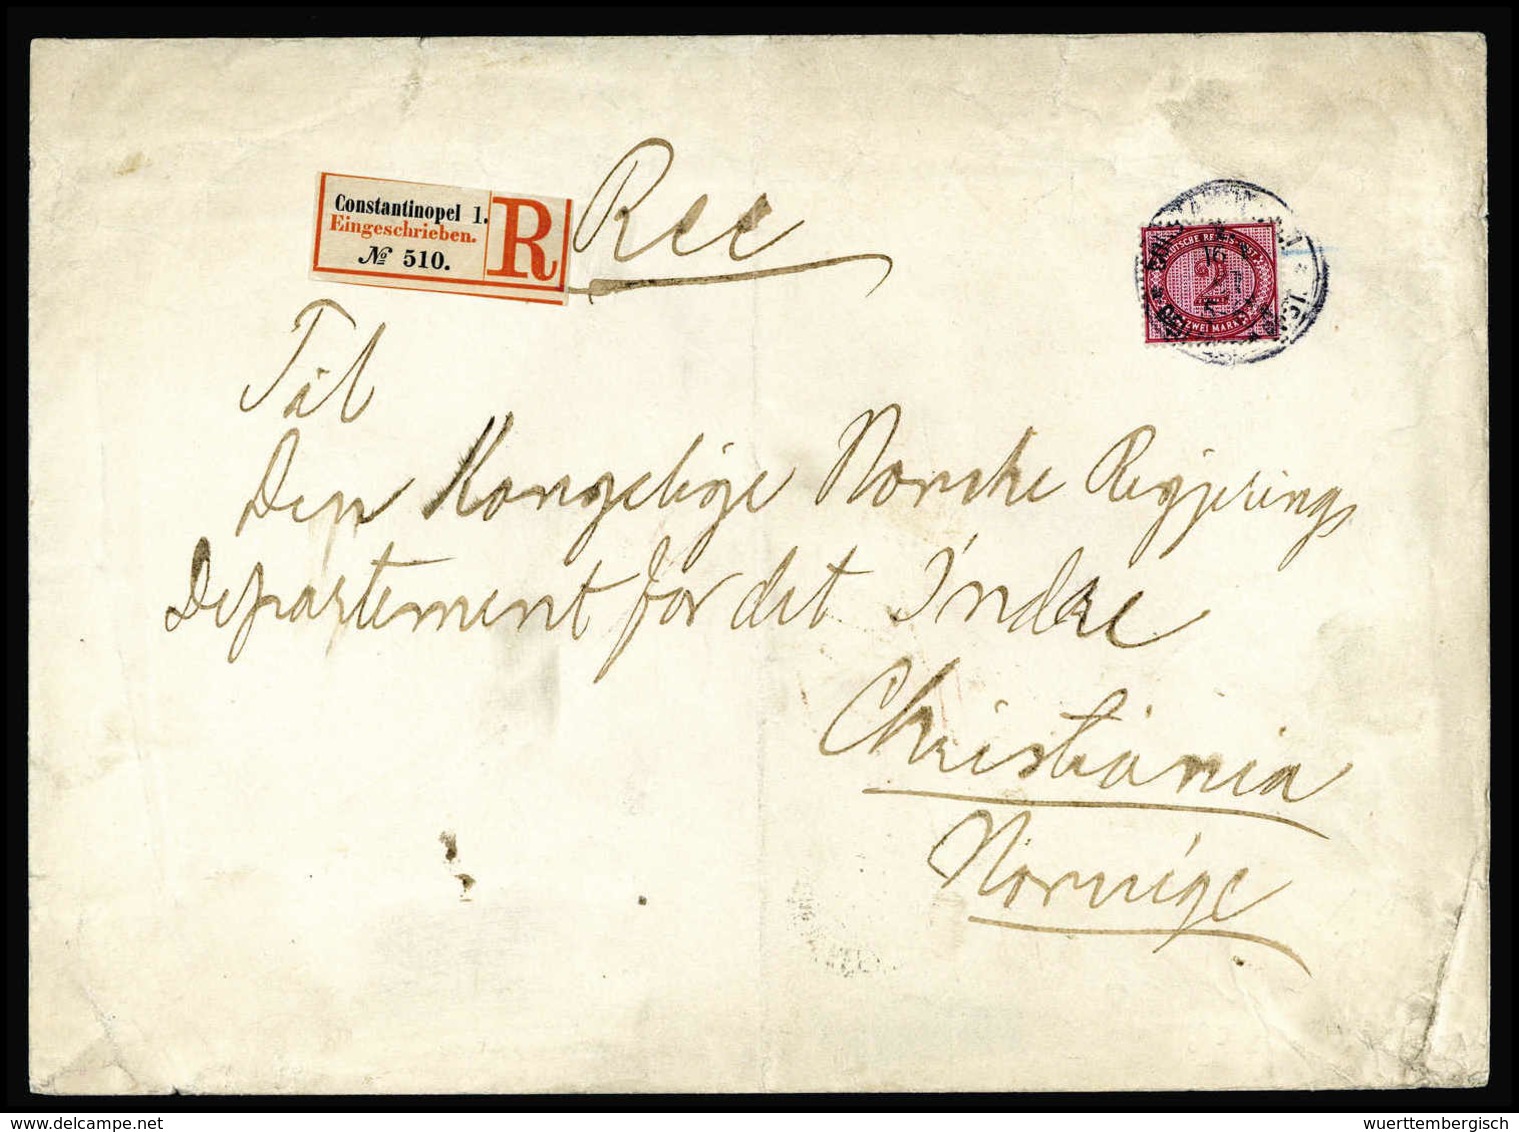 Constantinopel 1.
Eingeschrieben.
№ 510.
R
Rec
DEUTSCHE REICHS-POST
2
ZWEI MARK
Til
Den Kongelige Norske Regjerings
Departement for det Indre
Christiania
Norvége
delcampe.net
wuerttembergisch